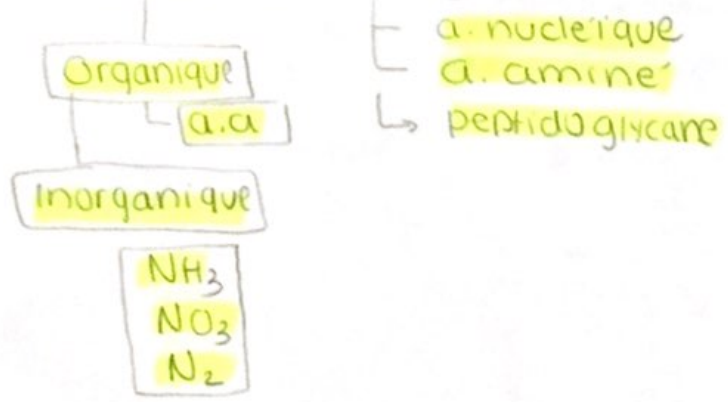 Organique
a.a
Inorganique
NH3
NO3
N2
a. nucléique
a. aminé
peptidoglycane